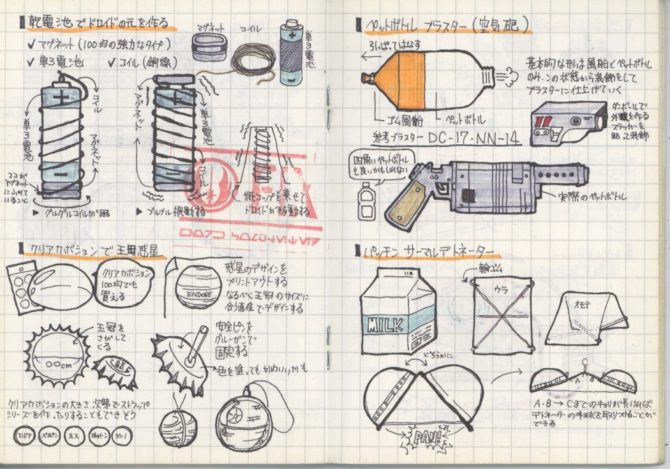 乾電池でドロイドの元を作る
✓ マグネット(100均の強力なタイプ)
✓ 単3電池
✓ コイル(銅線)
マグネット
コイル
単3電池
コイル
単3電池
マグネット
ここが
▶ グルグルコイルが回る
マグネット
単3電池
コイル
▶ ブルブル振動する
紙コップを乗せて
ドロイドが移動する
クリアカポションで王冠惑星
クリアカポション
100均でも
買える
ENDORE
惑星のデザインを
プリントアウトする
なるべく王冠のサイズに
合う適度でデザインする
王冠を
さがして
くる
○○cm
安全ピンを
グルーガンで
固定する
色を塗ってもかわいいかも
クリアカポションの大きさ次第でストラップ
シリーズを作ったりすることもできそう
ペットボトル ブラスター(空気砲)
引っぱってはなす
ゴム風船
ペットボトル
基本的な形は風船とペットボトル
のみ。この状態から装飾をして
ブラスターに仕上げていく
参考ブラスター DC-17・NN-14
ダンボールで
外観を作る
ステッカーを
貼って装飾
四角いペットボトル
も良いかもしれない
実際のペットボトル
パッチン サーマルデトネーター
MILK
輪ゴム
ウラ
オモテ
どちらかに
PAM!
A
B
C
A・B→Cまでのキョリが長ければ
デトネーターの半球状を取りつけることが
できる